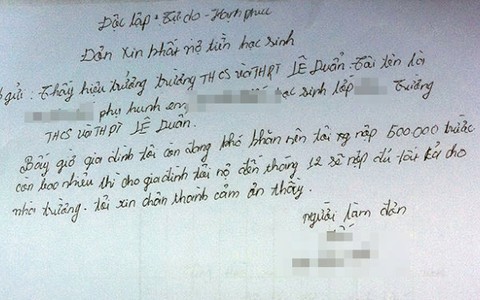 Độc lập - Tự do - Hạnh phúc
Đản xin khất nợ tiền học sinh
gửi: Thầy hiệu trưởng trường THCS và THPT LÊ Duẩn. Tôi tên là
phụ huynh em học sinh lớp trường
THCS và THPT LÊ Duẩn.
Bấy giờ gia đình tôi còn đang khó khăn nên tôi nộp 500.000 trước
còn bao nhiêu thì cho gia đình tôi nợ đến tháng 12 sẽ nộp đủ tất cả cho
nhà trường. tôi xin chân thành cảm ơn thầy.
người làm đản